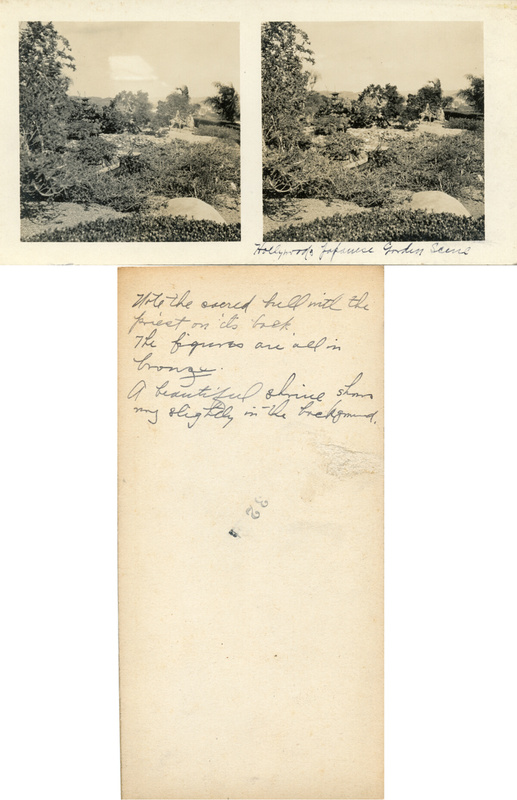 Hollywoods Japanese Garden Scenes
Note the sacred bull with the
priest on its back.
The figures are all in
bronze.
A beautiful shrine shows
very slightly in the background.
32